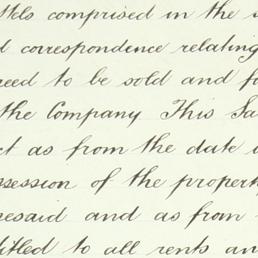 comprised in the
correspondence relating
to be sold and
the Company This Sa
ct as from the date
ssession of the property
esaid and as from
titled to all rents an